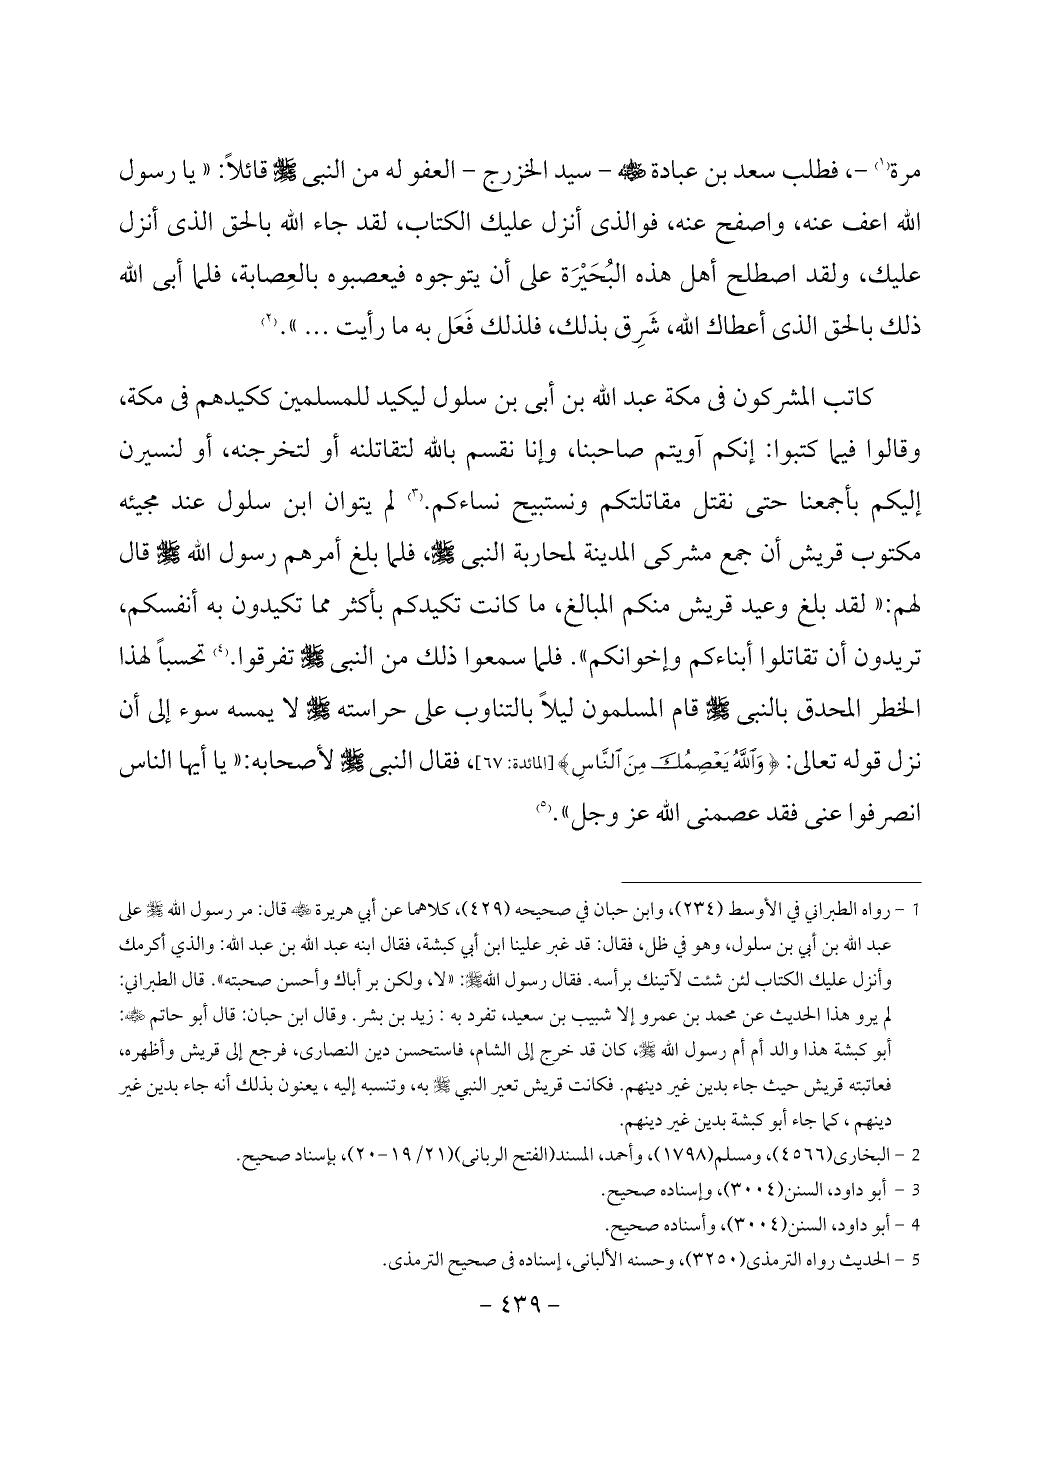 مرة(١) –، فطلب سعد بن عبادة ﷺ – سيد الخزرج – العفو له من النبى ﷺ قائلاً: « يا رسول
الله اعف عنه، واصفح عنه، فوالذى أنزل عليك الكتاب، لقد جاء الله بالحق الذى أنزل
عليك، ولقد اصطلح أهل هذه البُحَيْرَة على أن يتوجوه فيعصبوه بالعِصابة، فلما أبى الله
ذلك بالحق الذى أعطاك الله، شَرِق بذلك، فلذلك فَعَل به ما رأيت ... ».(٢)
كاتب المشركون فى مكة عبد الله بن أبى بن سلول ليكيد للمسلمين ككيدهم فى مكة،
وقالوا فيما كتبوا: إنكم آويتم صاحبنا، وإنا نقسم بالله لتقاتلنه أو لتخرجنه، أو لنسيرن
إليكم بأجمعنا حتى نقتل مقاتلتكم ونستبيح نساءكم.(٣) لم يتوان ابن سلول عند مجيئه
مكتوب قريش أن جمع مشركى المدينة لمحاربة النبى ﷺ، فلما بلغ أمرهم رسول الله ﷺ قال
لهم:« لقد بلغ وعيد قريش منكم المبالغ، ما كانت تكيدكم بأكثر مما تكيدون به أنفسكم،
تريدون أن تقاتلوا أبناءكم وإخوانكم». فلما سمعوا ذلك من النبى ﷺ تفرقوا.(٤) تحسباً لهذا
الخطر المحدق بالنبى ﷺ قام المسلمون ليلاً بالتناوب على حراسته ﷺ لا يمسه سوء إلى أن
نزل قوله تعالى: ﴿ وَٱللَّهُ يَعْصِمُكَ مِنَ ٱلنَّاسِ ﴾ [المائدة: ٦٧]، فقال النبى ﷺ لأصحابه:« يا أيها الناس
انصرفوا عنى فقد عصمنى الله عز وجل».(٥)
1 – رواه الطبراني في الأوسط (٢٣٤)، وابن حبان في صحيحه (٤٢٩)، كلاهما عن أبي هريرة ﷺ قال: مر رسول الله ﷺ على
عبد الله بن أبي بن سلول، وهو في ظل، فقال: قد غبر علينا ابن أبي كبشة، فقال ابنه عبد الله بن عبد الله: والذي أكرمك
وأنزل عليك الكتاب لئن شئت لآتينك برأسه. فقال رسول الله ﷺ: «لا، ولكن بر أباك وأحسن صحبته». قال الطبراني:
لم يرو هذا الحديث عن محمد بن عمرو إلا شبيب بن سعيد، تفرد به : زيد بن بشر. وقال ابن حبان: قال أبو حاتم ﷺ:
أبو كبشة هذا والد أم أم رسول الله ﷺ، كان قد خرج إلى الشام، فاستحسن دين النصارى، فرجع إلى قريش وأظهره،
فعاتبته قريش حيث جاء بدين غير دينهم. فكانت قريش تعير النبي ﷺ به، وتنسبه إليه ، يعنون بذلك أنه جاء بدين غير
دينهم ، كما جاء أبو كبشة بدين غير دينهم.
2 – البخارى(٤٥٦٦)، ومسلم(١٧٩٨)، وأحمد، المسند(الفتح الربانى)(٢١/ ١٩-٢٠)، بإسناد صحيح.
3 – أبو داود، السنن(٣٠٠٤)، وإسناده صحيح.
4 – أبو داود، السنن(٣٠٠٤)، وأسناده صحيح.
5 – الحديث رواه الترمذى(٣٢٥٠)، وحسنه الألبانى، إسناده فى صحيح الترمذى.
– ٤٣٩ –